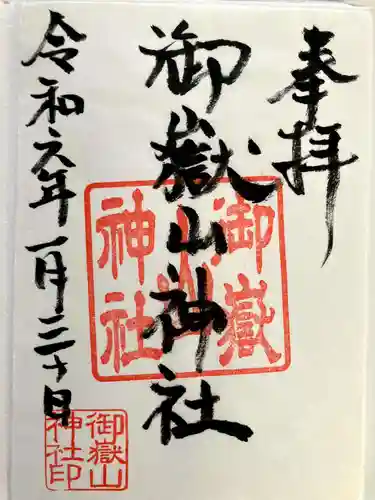 奉拝
御嶽山神社
令和六年一月三十日
御嶽山神社
御嶽山神社印